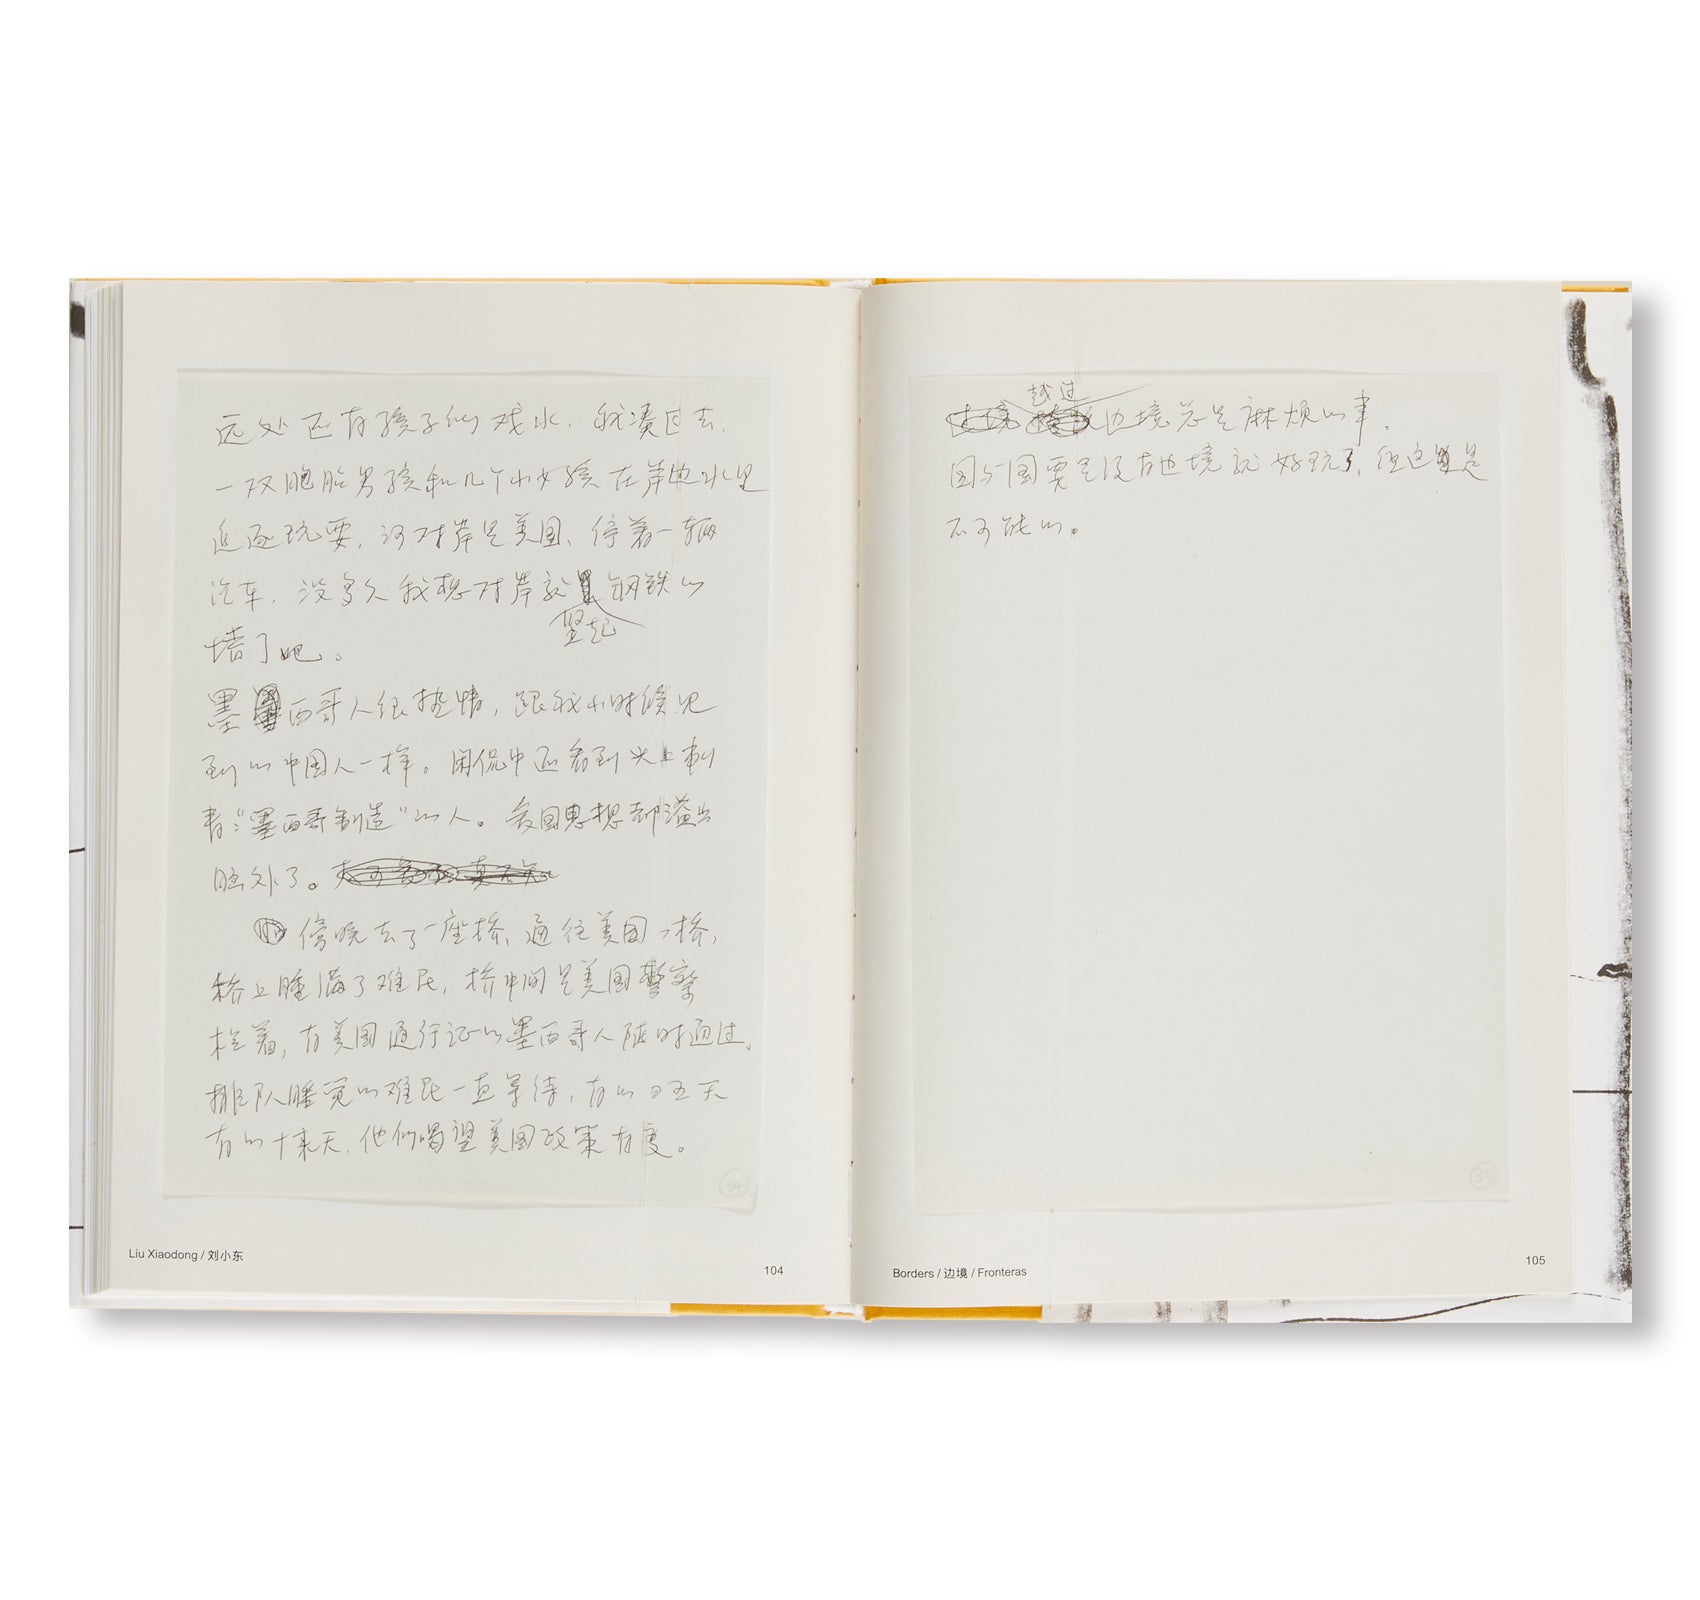 远处还有孩子们戏水，我凑过去，
一双胞胎男孩和几个小女孩在岸边水里
追逐玩耍，河对岸是美国、停着一辆
汽车，没多久我想对岸就 钢铁的
竖起
墙了吧。
墨 西哥人很热情，跟我小时候见
到的中国人一样。闲侃中还看到头上刺
青“墨西哥制造”的人。爱国思想都溢出
脑外了。
傍晚去了一座桥，通往美国 桥，
桥上睡满了难民，桥中间是美国警察
拦着，有美国通行证的墨西哥人随时通过。
排队睡觉的难民一直等待，有的 五天
有的十来天，他们喝望美国政策有度。
34
Liu Xiaodong / 刘小东
104
越过
边境总是麻烦的事。
国与国要是没有边境就好玩了，但这 是
不可能的。
35
Borders / 边境 / Fronteras
105